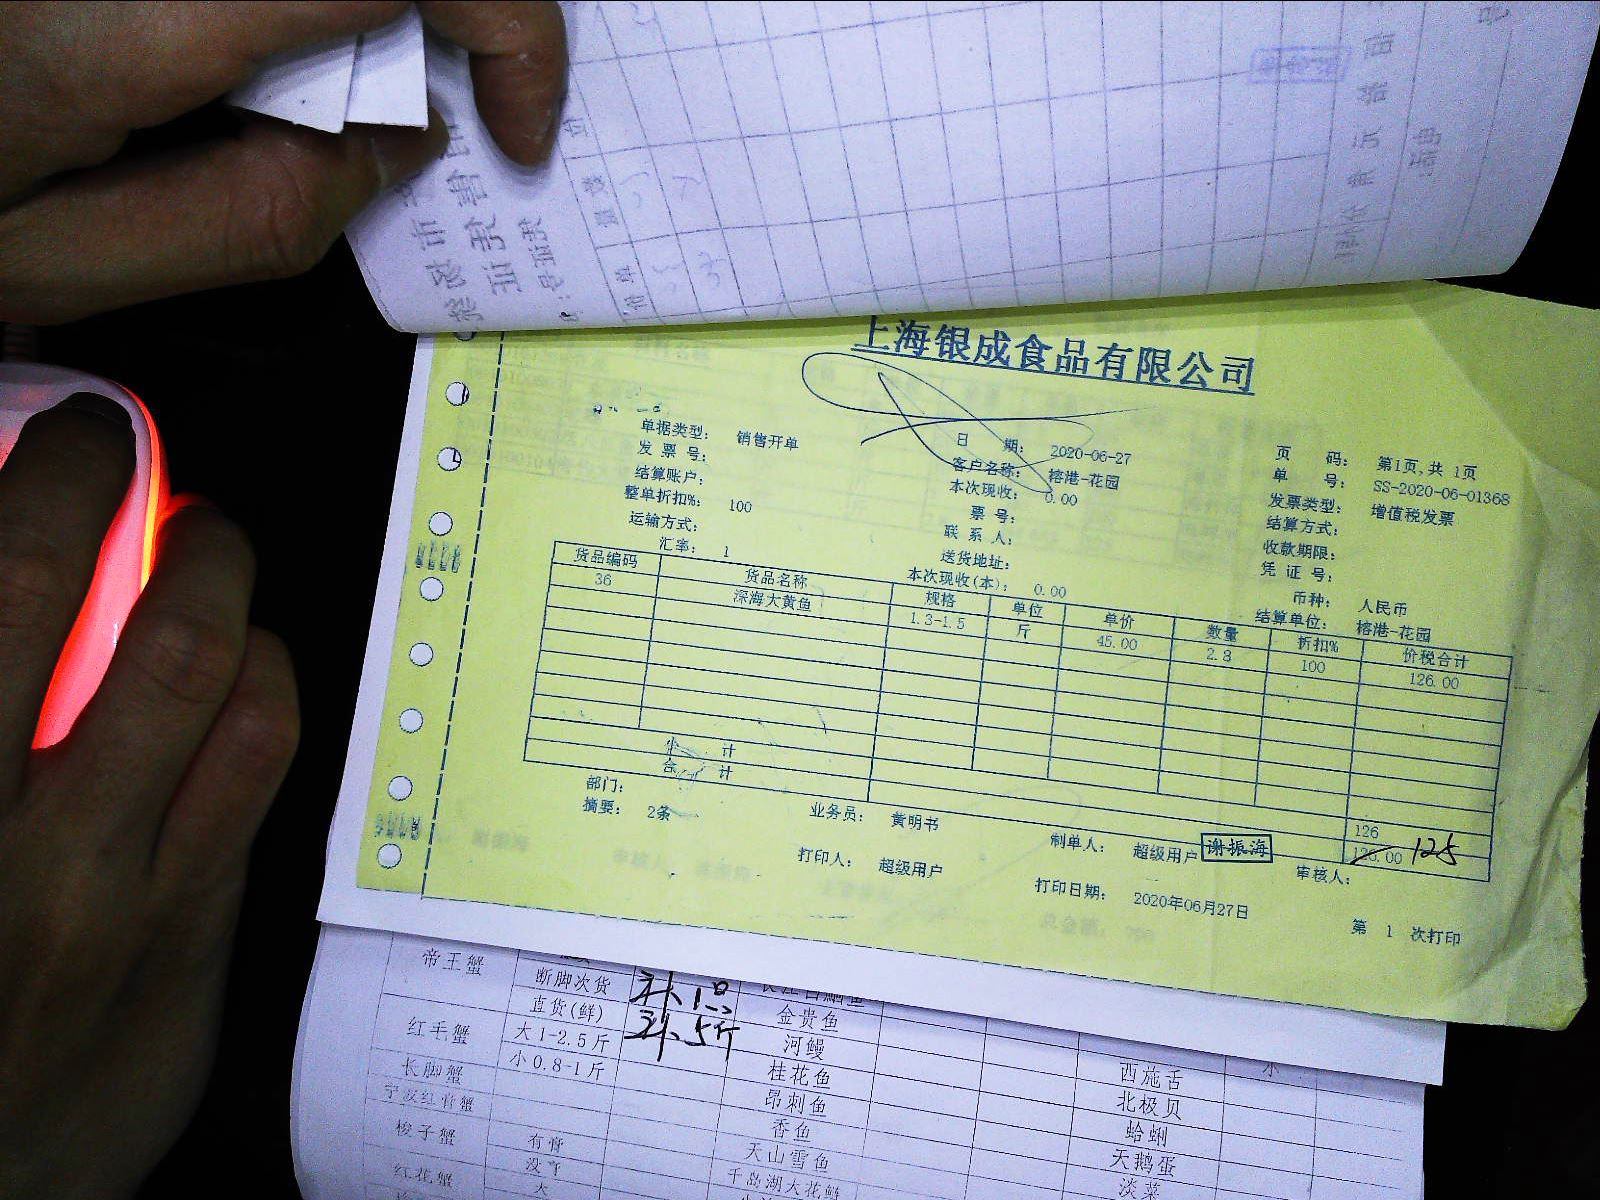 上海银成食品有限公司
单据类型： 销售开单 日 期： 2020-06-27 页 码： 第1页,共 1页
发 票 号： 客户名称： 榕港-花园 单 号： SS-2020-06-01368
结算账户： 本次现收： 0.00 发票类型： 增值税发票
整单折扣%： 100 票 号： 结算方式：
运输方式： 联 系 人： 收款期限：
汇率： 1 送货地址： 凭 证 号：
本次现收(本)： 0.00 币种： 人民币
结算单位： 榕港-花园
货品编码 货品名称 规格 单位 单价 数量 折扣% 价税合计
36 深海大黄鱼 1.3-1.5 斤 45.00 2.8 100 126.00
小 计 126
合 计 126.00 125
部门： 业务员： 黄明书 制单人： 超级用户 谢振海 审核人：
摘要： 2条 打印人： 超级用户 打印日期： 2020年06月27日 第 1 次打印
帝王蟹
断脚次货
直货(鲜) 金贵鱼
红毛蟹 大1-2.5斤 补5斤 河鳗
小0.8-1斤 桂花鱼 西施舌
长脚蟹 昂刺鱼 北极贝
宁波红膏蟹 香鱼 蛤蜊
梭子蟹 有膏 天山雪鱼 天鹅蛋
红花蟹 大 千岛湖大花鲢 淡菜